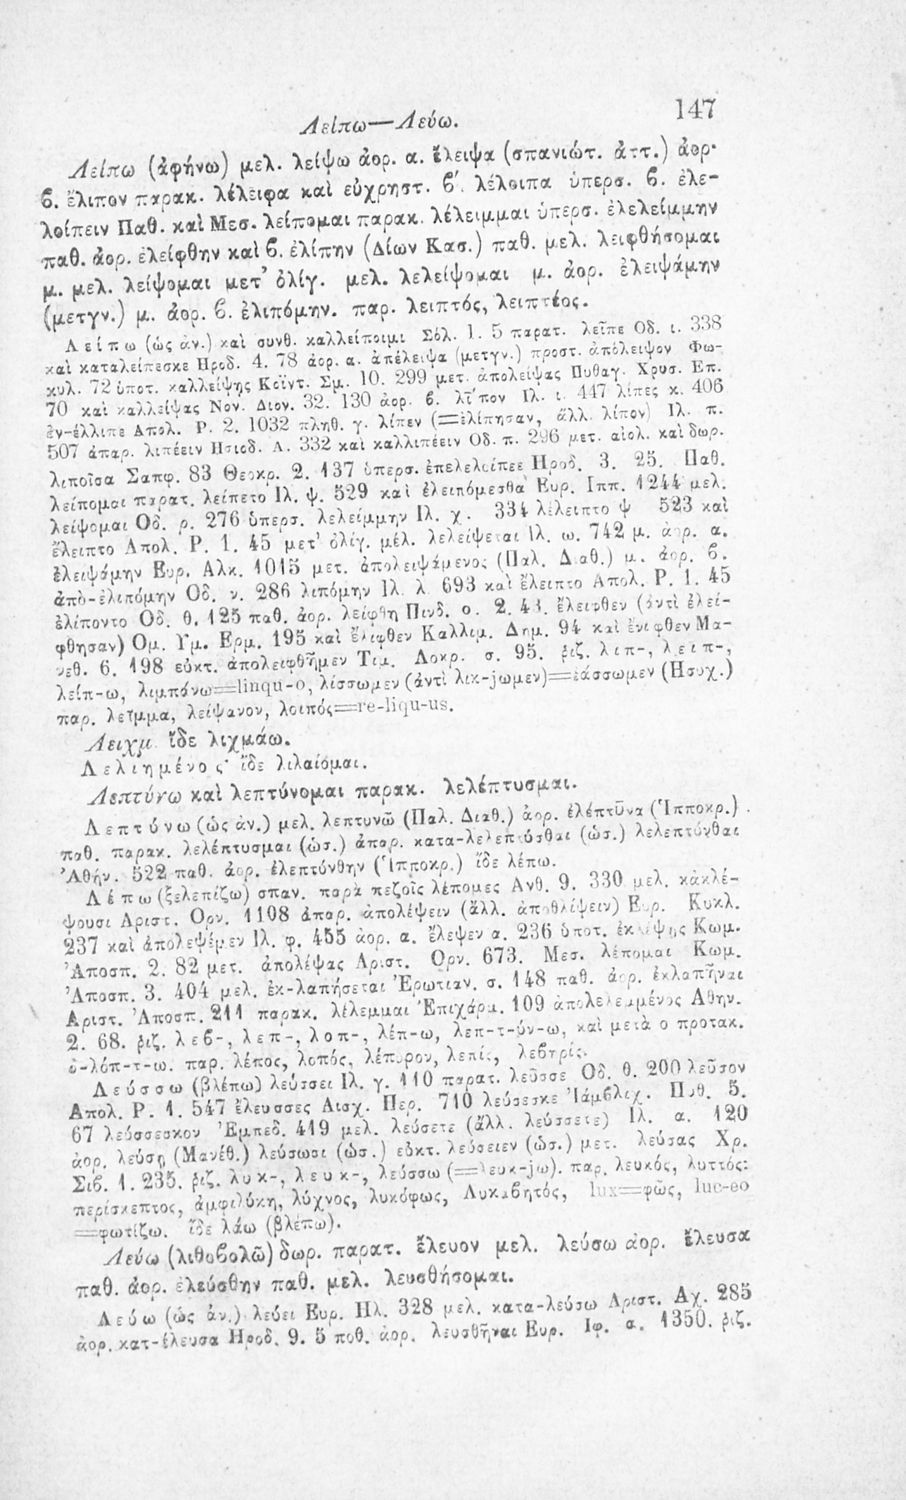 Λείπω—Λεύω.
147
Λείπω (ἀφήνω) μελ. λείψω ἀορ. α. ἔλειψα (σπανιώτ. ἀττ.) ἀορ.
β. ἔλιπον παρακ. λέλειφα καὶ εὐχρηστ. β΄. λέλοιπα ὑπερσ. β. ἐλε-
λοίπειν Παθ. καὶ Μεσ. λείπομαι παρακ. λέλειμμαι ὑπερσ. ἐλελείμμην
παθ. ἀορ. ἐλείφθην καὶ β. ἐλίπην (Δίων Κασ.) παθ. μελ. λειφθήσομαι
μ. μελ. λείψομαι μετ’ ὀλίγ. μελ. λελείψομαι μ. ἀορ. ἐλειψάμην
(μετγν.) μ. ἀορ. β. ἐλιπόμην. παρ. λειπτός, λειπτέος.
Λείπω (ὡς ἀν.) καὶ συνθ. καλλείποιμι Σόλ. 1. 5 παρατ. λεῖπε Οδ. ι. 338
καὶ καταλείπεσκε Ηροδ. 4. 78 ἀορ. α. ἀπέλειψα (μετγν.) προστ. ἀπόλειψον Φω-
κυλ. 72 ὑποτ. καλλείψῃς Κοϊντ. Σμ. 10. 299 μετ. ἀπολείψας Πυθαγ. Χρυσ. Επ.
70 καὶ καλλείψας Νον. Διον. 32. 130 ἀορ. β. λίπον Ιλ. ι. 447 λίπες κ. 406
ἐν-έλλιπε Απολ. Ρ. 2. 1032 πληθ. γ. λίπεν (=ἐλίπησαν, ἄλλ. λίπον) Ιλ. π.
507 ἀπαρ. λιπέειν Ησιοδ. Α. 332 καὶ καλλιπέειν Οδ. π. 296 μετ. αἰολ. καὶ δωρ.
λιποῖσα Σαπφ. 83 Θεοκρ. 2. 137 ὑπερσ. ἐπελελοίπεε Ηροδ. 3. 25. Παθ.
λείπομαι παρατ. λείπετο Ιλ. ψ. 529 καὶ ἐλειπόμεσθα Ευρ. Ιππ. 1244 μελ.
λείψομαι Οδ. ρ. 276 ὑπερσ. λελείμμην Ιλ. χ. 334 λέλειπτο ψ 523 καὶ
ἔλειπτο Απολ. Ρ. 1. 45 μετ’ ὀλίγ. μέλ. λελείψεται Ιλ. ω. 742 μ. ἀορ. α.
ἐλειψάμην Ευρ. Αλκ. 1015 μετ. ἀπολειψάμενος (Παλ. Διαθ.) μ. ἀορ. β.
ἀπὸ-ἐλιπόμην Οδ. ν. 286 λιπόμην Ιλ. λ 693 καὶ ἔλειπτο Απολ. Ρ. 1. 45
ἐλίποντο Οδ. θ. 125 παθ. ἀορ. λείφθη Πινδ. ο. 2. 43. ἔλειφθεν (ἀντὶ ἐλεί-
φθησαν) Ομ. Υμ. Ερμ. 195 καὶ ἔλιφθεν Καλλιμ. Δημ. 94 καὶ Μα-
νεθ. 6. 198 εὐκτ. ἀπολειφθῆμεν Τιμ. Λοκρ. σ. 95. ῥιζ. λιπ-, λειπ-,
λείπ-ω, λιμπάνω=linqu-o, λίσσωμεν (ἀντὶ λικ-jωμεν)=ἐάσσωμεν (Ησυχ.)
παρ. λεῖμμα, λείψανον, λοιπός=re-liqu-us.
Λειχμ ἴδε λιχμάω.
Λελιημένος· ἴδε λιλαίομαι.
Λεπτύνω καὶ λεπτύνομαι παρακ. λελέπτυσμαι.
Λεπτύνω (ὡς ἀν.) μελ. λεπτυνῶ (Παλ. Διαθ.) ἀορ. ἐλέπτῦνα (Ἱπποκρ.)
παθ. παρακ. λελέπτυσμαι (ὡσ.) ἀπαρ. κατα-λελεπτύσθαι (ὡσ.) λελεπτύνθαι
Ἀθήν. 522 παθ. ἀορ. ἐλεπτύνθην (Ἱπποκρ.) ἴδε λέπω.
Λέπω (ξελεπίζω) σπαν. παρὰ πεζοῖς λέπομες Ανθ. 9. 330 μελ.
ψουσι Αριστ. Ορν. 1108 ἀπαρ. ἀπολέψειν (ἄλλ. ἀποθλίψειν) Ευρ. Κυκλ.
237 καὶ ἀπολεψέμεν Ιλ. φ. 455 ἀορ. α. ἔλεψεν α. 236 ὑποτ. ἐκλέψῃς Κωμ.
Ἀποσπ. 2. 82 μετ. ἀπολέψας Αριστ. Ορν. 673. Μεσ. λέπομαι Κωμ.
Ἀποσπ. 3. 404 μελ. ἐκ-λαπήσεται Ἐρωτιαν. σ. 148 παθ. ἀορ. ἐκλαπῆναι
Αριστ. Ἀποσπ. 211 παρακ. λέλεμμαι Ἐπιχάρμ. 109 ἀπολελεμμένος Αθην.
2. 68. ῥιζ. λεβ-, λεπ-, λοπ-, λέπ-ω, λεπ-τ-ύν-ω, καὶ μετὰ ο προτακ.
ὀ-λόπ-τ-ω. παρ. λέπος, λοπός, λέπυρον, λεπίς, λεβηρίς.
Λεύσσω (βλέπω) λεύσσει Ιλ. γ. 110 παρατ. λεῦσσε Οδ. θ. 200 λεῦσον
Απολ. Ρ. 1. 547 ἔλευσσες Αισχ. Περ. 710 λεύσεσκε Ἰάμβλιχ. Πυθ. 5.
67 λεύσσεσκον Ἐμπεδ. 419 μελ. λεύσετε (ἄλλ. λεύσσετε) Ιλ. α. 120
ἀορ. λεύσῃ (Μανέθ.) λεύσωσι (ὡσ.) εὐκτ. λεύσειεν (ὡσ.) μετ. λεύσας Χρ.
Σιβ. 1. 235. ῥιζ. λυκ-, λευκ-, λεύσσω (=λευκ-jω). παρ. λευκός, λυττός:
περίσκεπτος, ἀμφιλύκη, λύχνος, λυκόφως, Λυκαβητός, lux=φῶς, luc-eo
=φωτίζω. ἴδε λάω (βλέπω).
Λεύω (λιθοβολῶ) δωρ. παρατ. ἔλευον μελ. λεύσω ἀορ. ἔλευσα
παθ. ἀορ. ἐλεύσθην παθ. μελ. λευσθήσομαι.
Λεύω (ὡς ἀν.) λεύει Ευρ. Ηλ. 328 μελ. κατα-λεύσω Αριστ. Αχ. 285
ἀορ. κατ-έλευσα Ηροδ. 9. 5 παθ. ἀορ. λευσθῆναι Ευρ. Ιφ. α. 1350. ῥιζ.